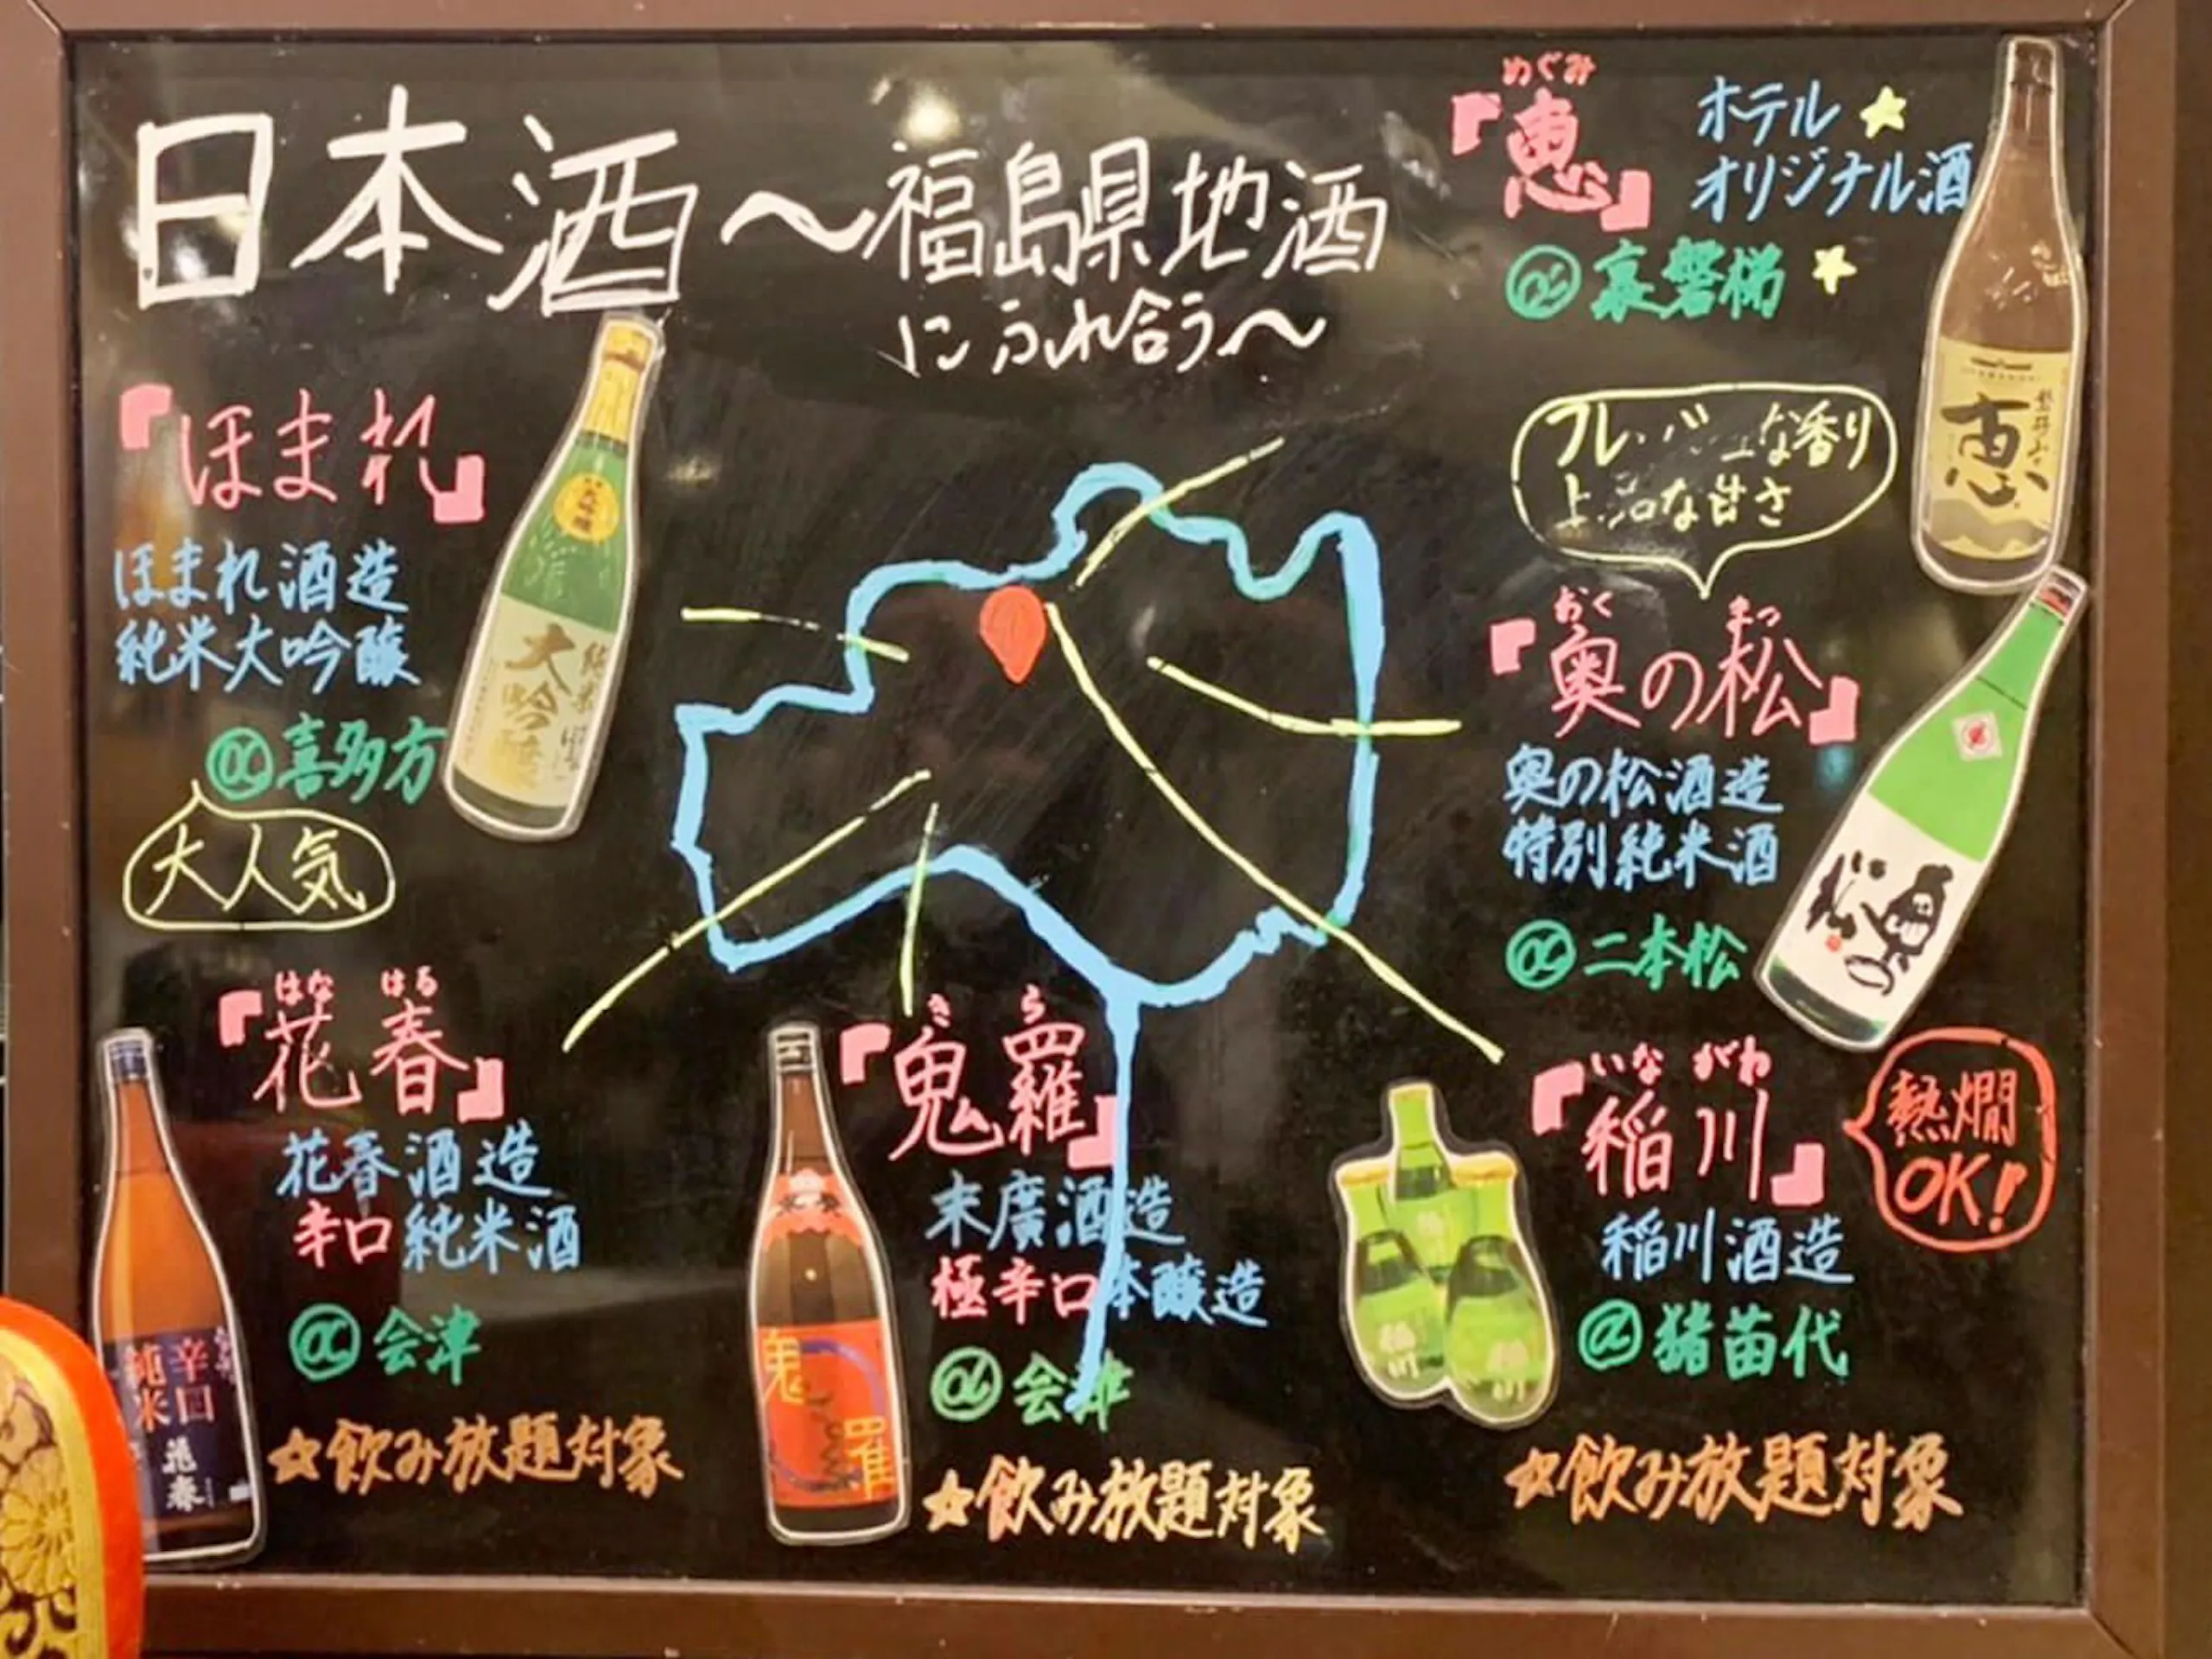 日本酒〜福島県地酒
にふれ合う〜
めぐみ
『恵』
ホテル
オリジナル酒
@裏磐梯
恵
『ほまれ』
ほまれ酒造
純米大吟醸
@喜多方
大人気
純米
大吟醸
フレッシュな香り
上品な甘さ
おく まつ
『奥の松』
奥の松酒造
特別純米酒
@二本松
奥の松
はな はる
『花春』
花春酒造
辛口純米酒
@会津
☆飲み放題対象
辛口
純米
花春
き ら
『鬼羅』
末廣酒造
極辛口本醸造
@会津
☆飲み放題対象
鬼
羅
いな がわ
『稲川』
稲川酒造
@猪苗代
☆飲み放題対象
熱燗
OK!